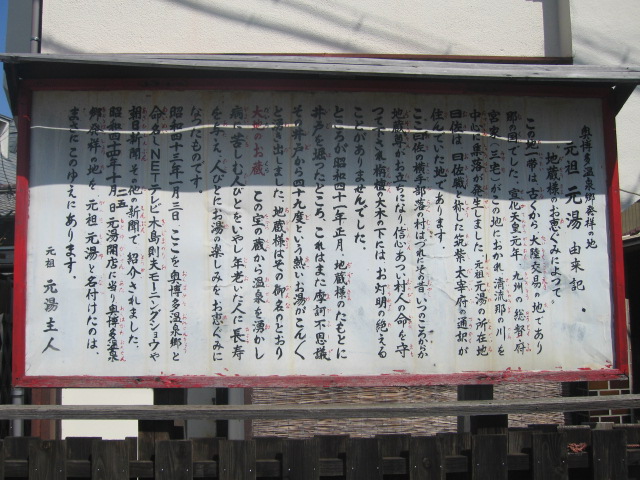 奥博多温泉郷発祥の地
元祖 元湯 由来記
地蔵様のお恵ぐみによつて
この地一帯は古くから大陸交易の地であり
那の国でした。宣化天皇元年、九州の総督府
宮家(三宅)がこの地におかれ清流那の川を
中心に集落が発生しました。元祖元湯の所在地
曰佐は曰佐職と称した筑紫太宰府の通訳が
住んでいた地であります。
ここ曰佐の横手部落の村はづれその昔いつのころからか
地蔵尊がお立ちになり信心あつい村人の命を守
つて下され栴檀の大木の下には お灯明の絶える
ことがありませんでした。
ところが昭和四十一年正月、地蔵様のたもとに
井戸を掘つたところ、これはまた摩訶不思議
その井戸から四十九度という熱いお湯がこんく
とわき出しました。地蔵様は字の御名のとおり
大地のお蔵 この宝の蔵から温泉を湧かし
病に苦しむ人びとをいやし年老いた人に長寿
をあたえ、人びとにお湯の楽しみをお恵ぐみに
なつたものです。
昭和四十三年一月三日 ここを奥博多温泉郷と
命名しNETテレビ木島則夫モーニングショウや
朝日新聞その他の新聞で紹介されました。
昭和四十四年十月二五日元湯開店に当り奥博多温泉
郷発祥の地を、元祖元湯と名付けたのは
まことにこのゆえにあります。
元祖 元湯主人